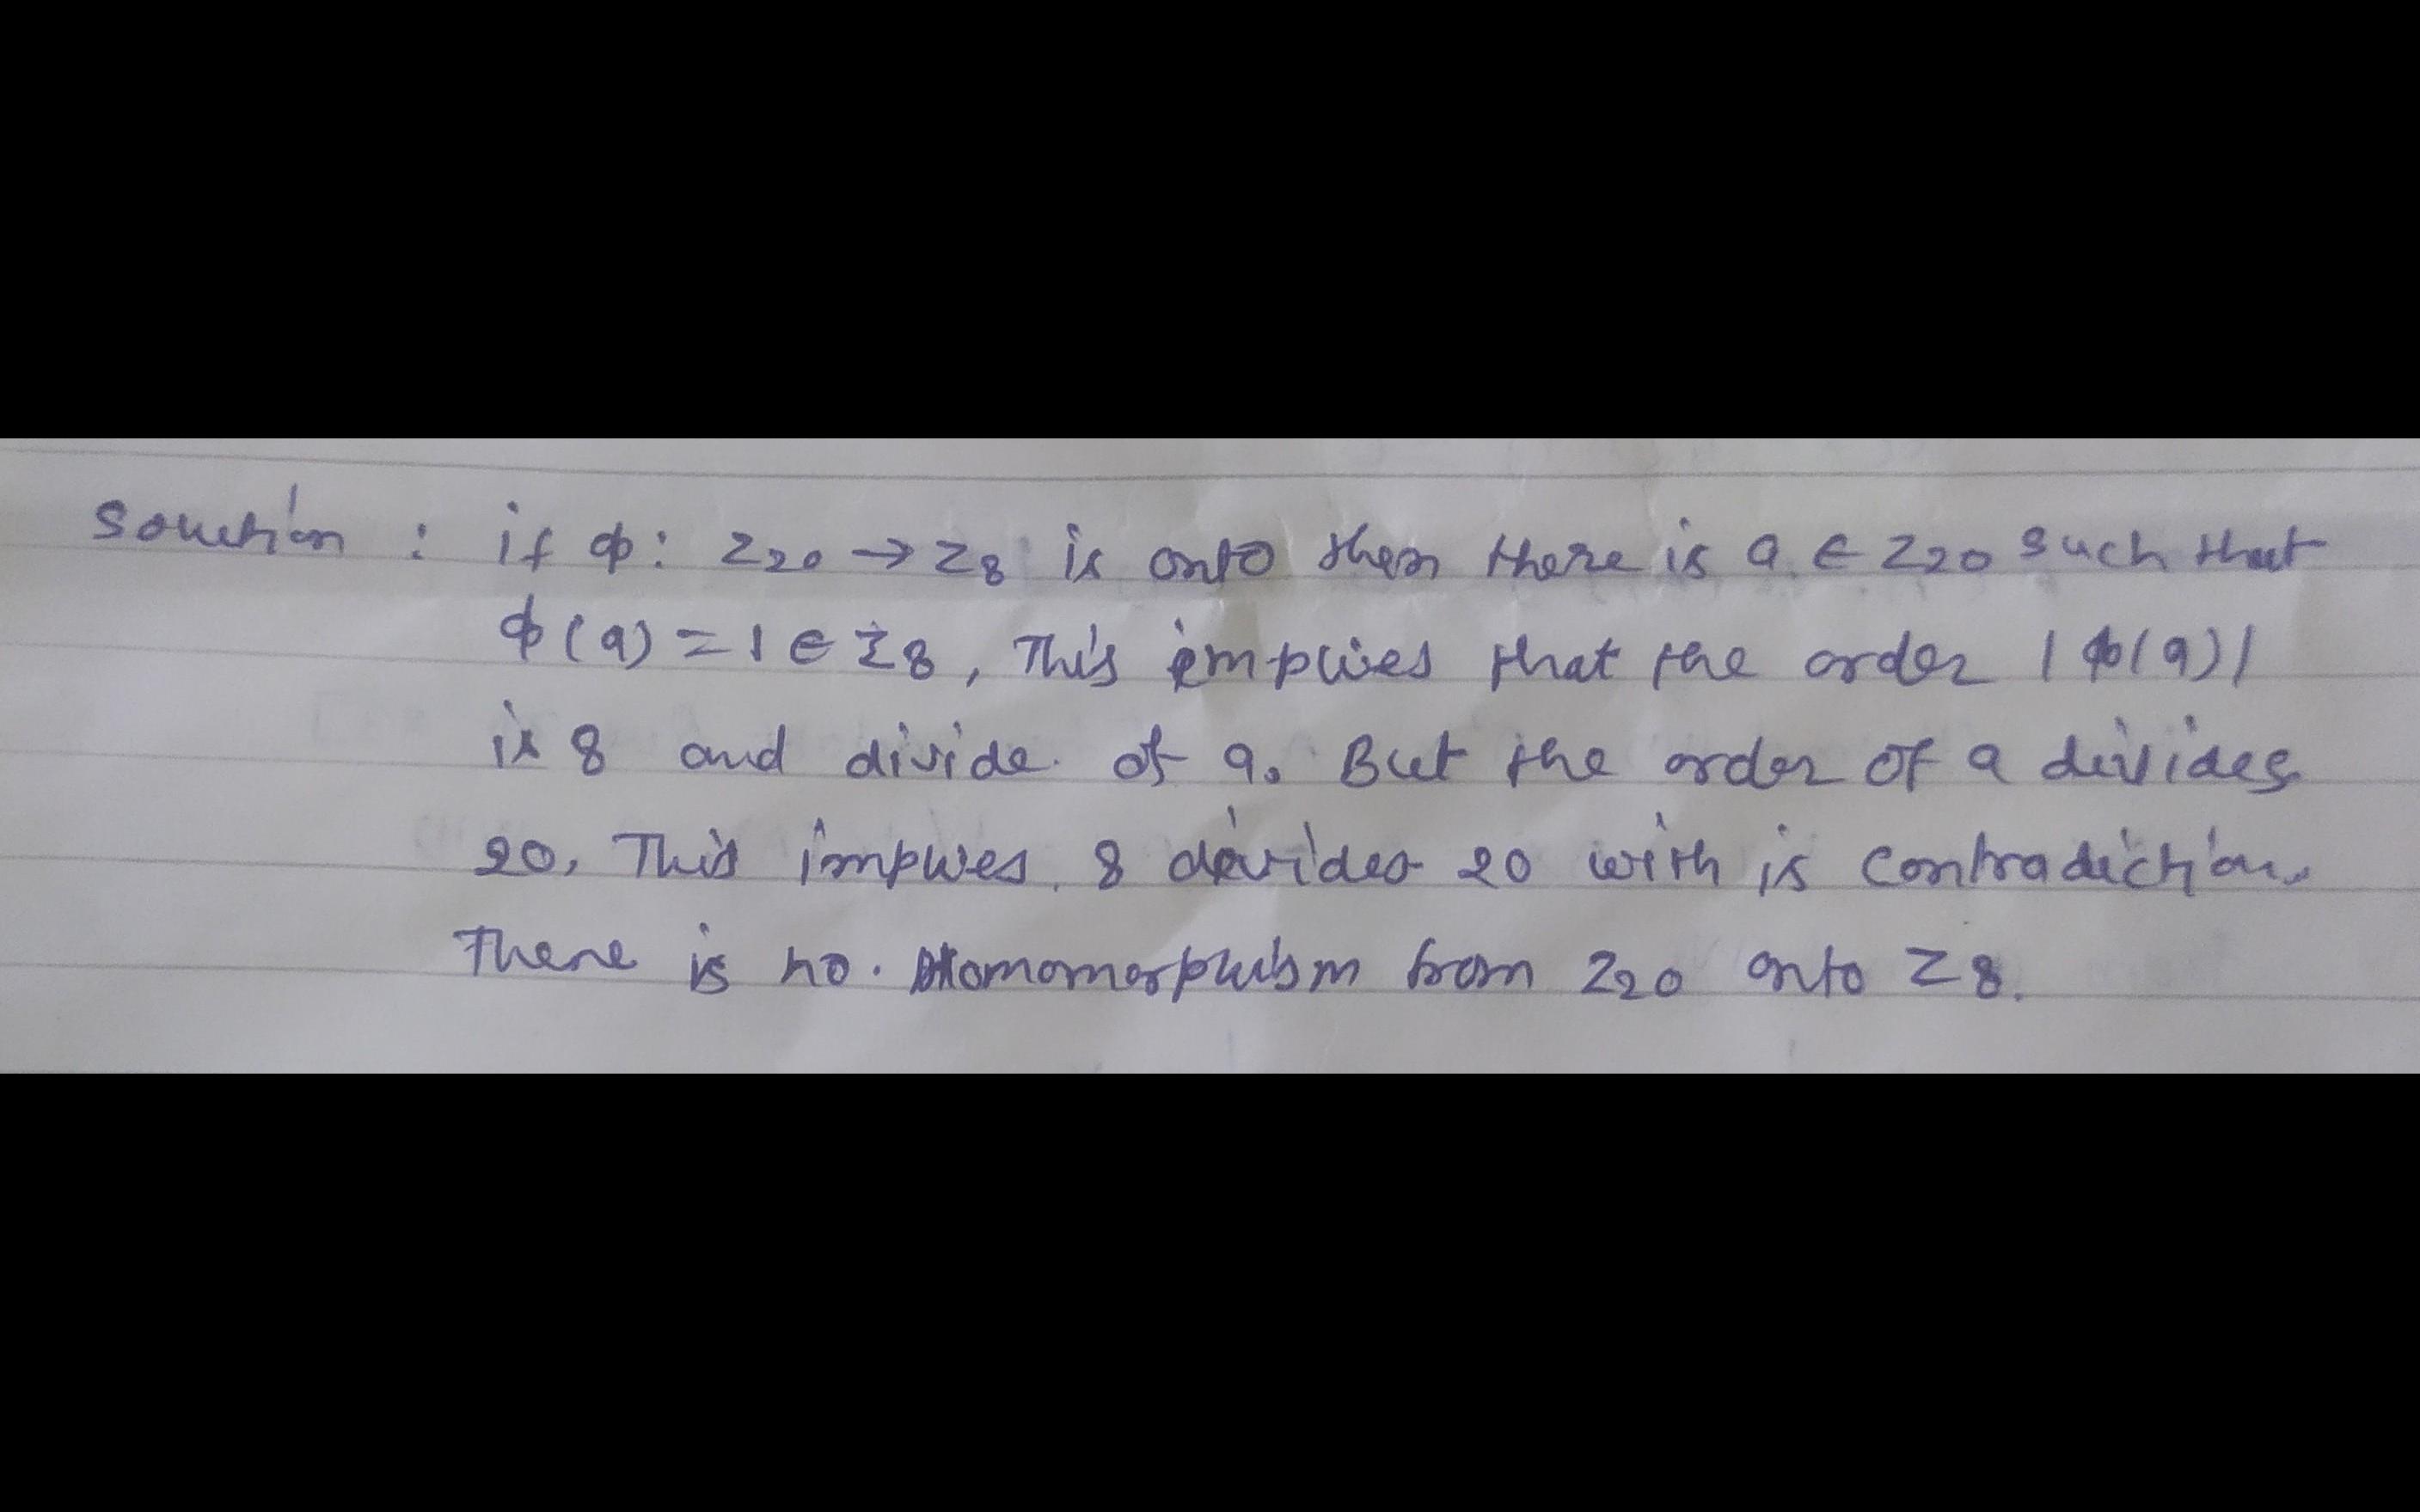 Solution : if φ: Z₂₀ → Z₈ is onto then there is a ∈ Z₂₀ such that
φ(a) = 1 ∈ Z₈, This implies that the order |φ(a)|
is 8 and divide of a. But the order of a divides
20, This implies 8 divides 20 with is contradiction.
There is no. Homomorphism from Z₂₀ onto Z₈.